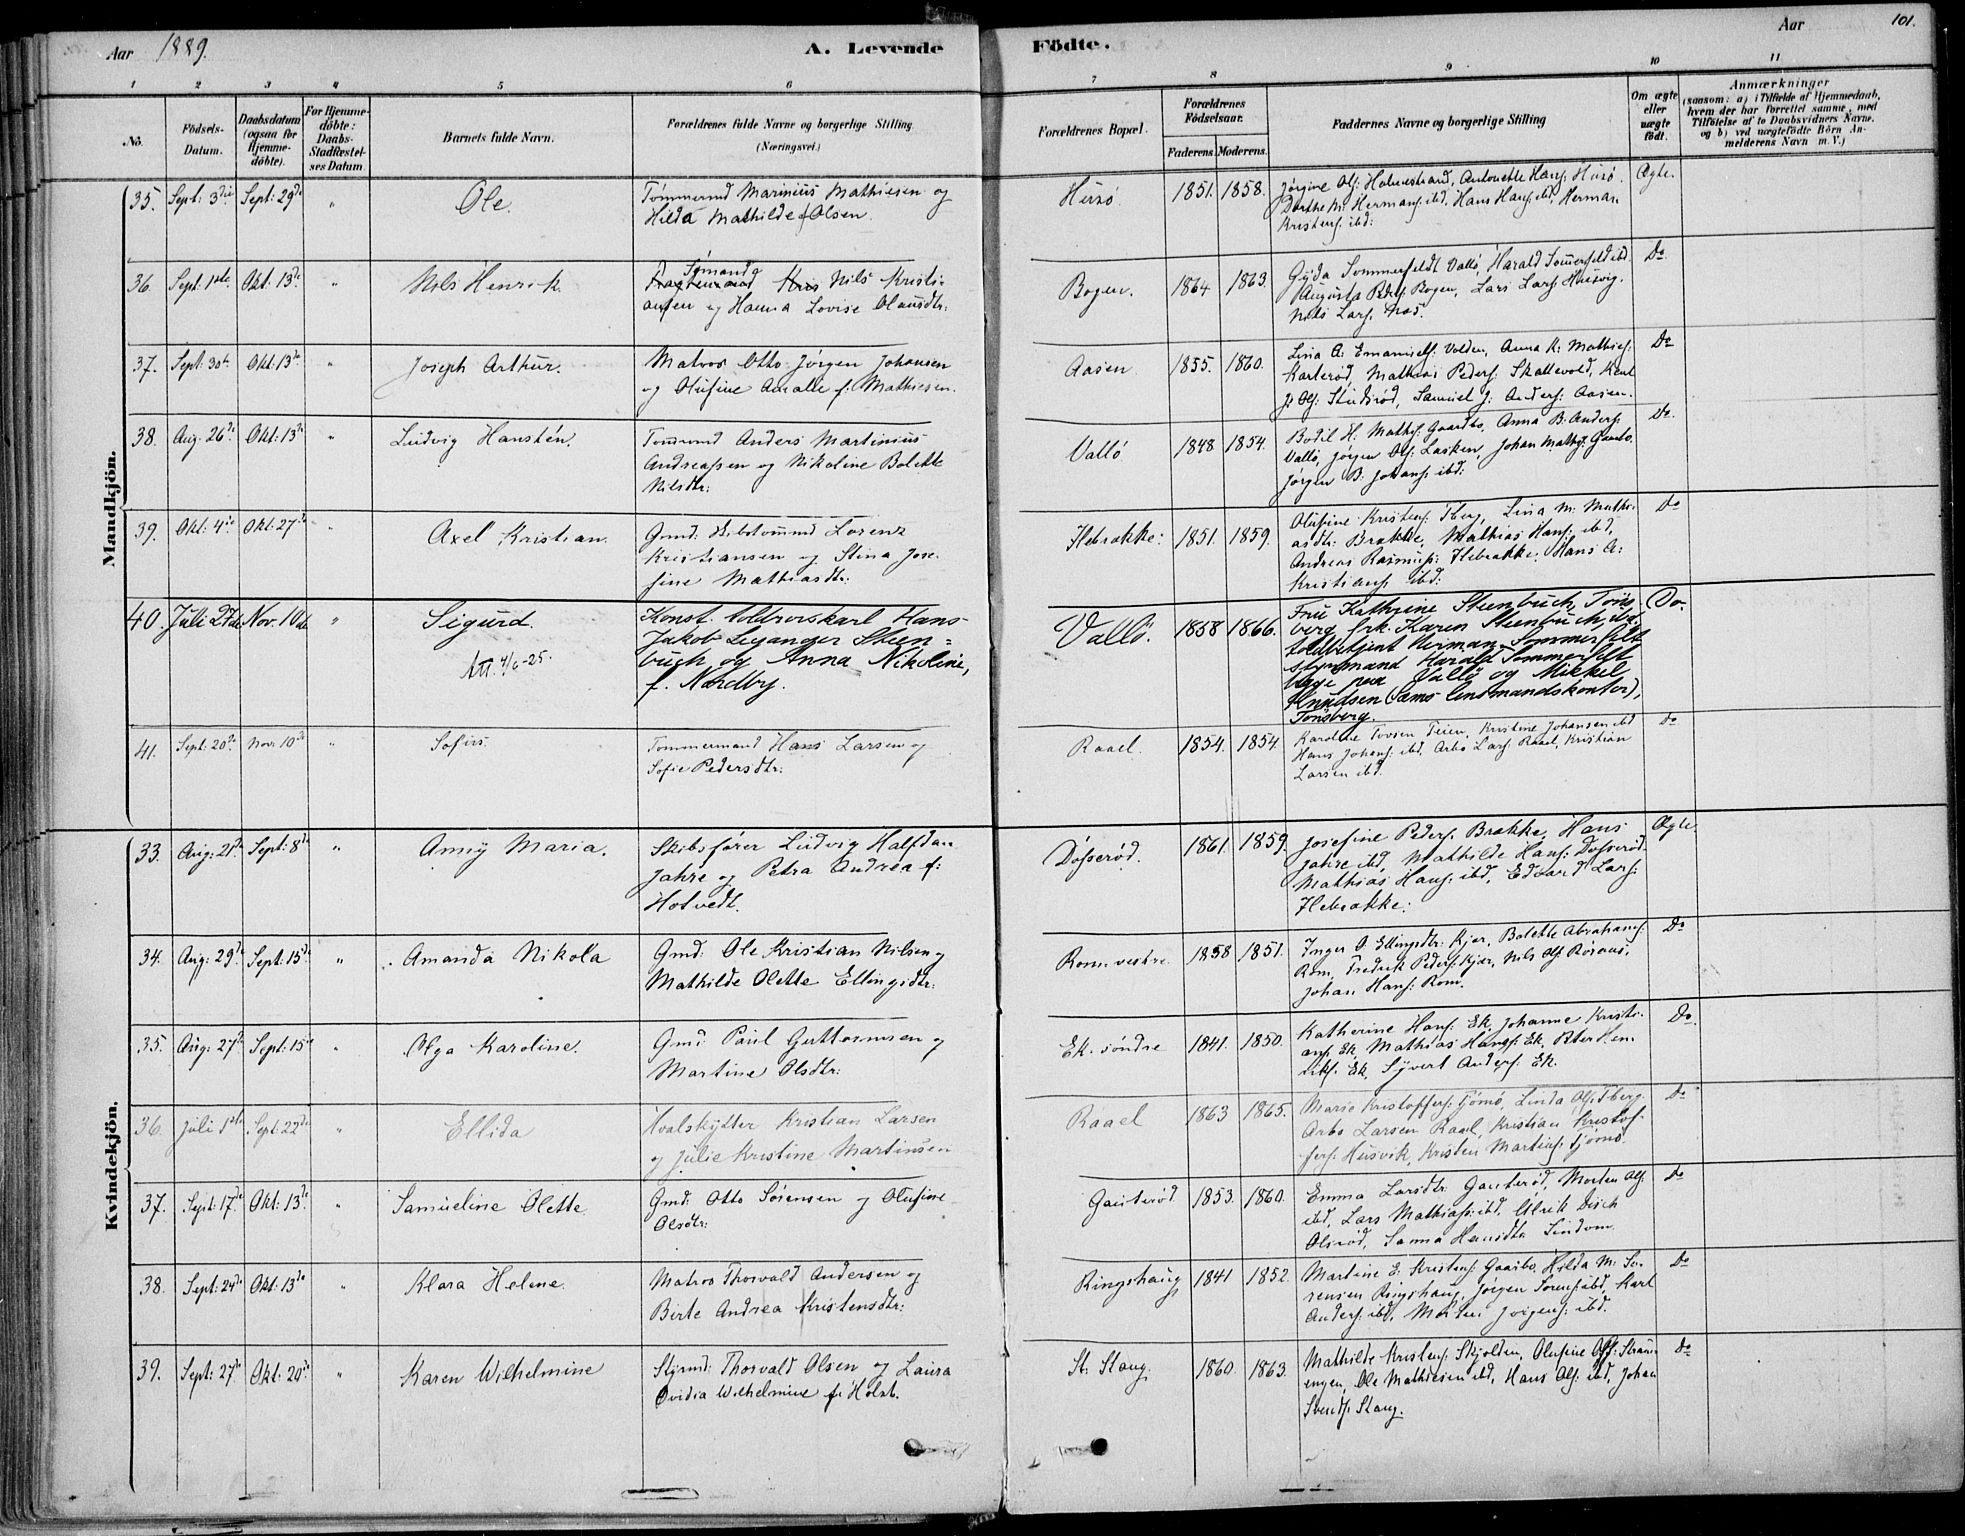 Aar 1889. A. Levende Födte. Aar 101.
1 2 3 4 5 6 7 8 9 10 11
No. Födsels-Datum. Daabsdatum (ogsaa for Hjemme-döbte). For Hjemme-döbte: Daabs-Stadfæstel-ses Datum Barnets fulde Navn. Forældrenes fulde Navne og borgerlige Stilling (Næringsvei.) Forældrenes Bopæl. Forældrenes Födselsaar. Faderens. Moderens. Faddernes Navne og borgerlige Stilling Om ægte eller uægte födt. Anmærkninger (saasom: a) i Tilfælde af Hjemmedaab, hvem der har forrettet samme, med Tilföielse af to Daabsvidners Navne, og b) ved uægtefödte Börn An-melderens Navn m. V.)
Mandkjön.
35. Sept: 3die Sept: 29de " Ole. Tømmermd Marinius Mathiesen og
Hilda Mathilde f. Olsen.
Husø. 1851. 1858. Jørgine Ols: Holmestrand, Antonette Hans: Husø.
Dorthe M. Hermans: ibd, Hans Hans: ibd, Herman
Kristens: ibd: Ægte.
36. Sept. 1ste Okt. 13de " Nils Henrik Sømand
Nils Kristi-
ansen og Hanna Lovise Olausdtr:
Bogen. 1864 1863. Gyda Sommerfeldt Vallö, Harald Sommerfeld ibd.
Augusta Peders: Bogen, Lars Lars: Husvig.
Nils Lars: Næs. Do
37. Sept. 30te Okt: 13de " Joseph Arthur. Matros Otto Jörgen Johansen
og Olufine Amalie f. Mathiesen.
Aasen. 1855. 1860. Lina A: Emanuels: Volden, Anna K: Mathies:
Karlerød, Mathias Peders: Skallevold, Karl
J: Ols: Studsrød, Samuel J: Anders: Aasen. Do
38. Aug. 26de Okt: 13de " Ludvig Hanstén. Tømmermd Anders Martinius
Andreassen og Nikoline Bolette
Nilsdtr:
Vallö 1848 1854. Bodil H: Mathis: Gaardbo, Anna B. Anders:
Vallö, Jørgen Ols: Lasken, Johan Mathis: Gaarbo.
Jørgen B. Johans: ibd: Do.
39. Okt: 4de Okt. 27de " Axel Kristian. Gmd: Skibstømmermd Lorenz
Kristiansen og Stina Jose-
fine Mathiasdtr:
Ilebrække: 1851. 1859. Olufine Kristens: Tberg, Lina M: Mathi-
asdtr: Brække, Mathias Hans: ibd,
Andreas Rasmuss: Ilebrække, Hans A:
Kristians: ibd: Do
40. Juli 27de Nov. 10de " Sigurd. Konst. toldrorskarl Hans
Jakob Leganger Steen=
buch og Anna Nikoline,
f. Nordby.
Att. 4/6-25.
Vallö. 1858 1866. Fru Kathrine Steenbuch, Töns-
berg, frk. Karen Steenbuch, ibd.
toldbetjent Herman Sommerfelt
styrmand Harald Sommerfelt
begge paa Vallö og Mikkel
Knudsen (Sems lensmandskontor),
Tönsberg. Do.
41. Sept: 20de Nov: 10de " Sofus. Tømmermand Hans Larsen og
Sofie Pedersdtr:
Raael. 1854. 1854 Karoline Tovsen Teien, Kristine Johansen ibd
Hans Johans: ibd, Arbo Lars: Raael, Kristian
Larsen ibd. Do
Kvindekjön.
33. Aug: 21de Sept: 8de " Anny Maria. Skibsfører Ludvig Halfdan
Jahre og Petra Andréa f:
Hotvedt.
Døsserød. 1861. 1859. Josefine Peders: Brække, Hans
Jahre ibd, Mathilde Hans: Døsserød.
Mathias Hans: ibd, Edvard Lars:
Ilebrække: Ægte.
34. Aug: 29de Sept: 15de " Amanda Nikola Gmd: Ole Kristian Nilsen og
Mathilde Olette Ellingsdtr:
Rom vestre 1858 1851. Inger O. Ellingsdtr: Kjær, Bolette Abrahams:
Rom, Fredrik Peders: Kjær, Nils Ols: Röraas,
Johan Hans: Rom. Do
35. Aug: 27de Sept: 15de " Olga Karoline. Gmd: Paul Guttormsen og
Martine Olsdtr:
Ek söndre 1841. 1850. Katherine Hans: Ek, Johanne Kristi-
ans: Ek, Mathias Hans: Ek, Peter Hen-
riks: Ek, Syvert Anders: Ek. Do
36. Juli 1ste Sept: 22de " Ellida Hvalskytter Kristian Larsen
og Julie Kristine Martinsen
Raael 1863 1865. Marie Kristoffers: Tjømø, Linda Ols: Tberg.
Arbo Larsen Raael, Kristian Kristof-
fers: Husvik, Kristen Martins: Tjømø. Do
37. Sept: 17de Okt: 13de " Samueline Olette Gmd: Otto Sörensen og Olufine
Olsdtr:
Gauterød 1853. 1860. Emma Larsdtr: Gauterød, Morten Ols:
ibd, Lars Mathias: ibd, Ulrik Disch
Olsrød, Sanna Hansdtr Lindom. Do
38. Sept: 24de Okt: 13de " Klara Helene. Matros Thorvald Andersen og
Birte Andrea Kristensdtr:
Ringshaug 1841 1852. Martine E: Kristens: Gaarbo, Hilda M: Sö-
rensen Ringshaug, Jörgen Sörens: ibd, Karl
Anders: ibd, Martin Jörgens: ibd. Do
39. Sept: 27de Okt: 20de " Karen Wilhelmine Styrmd: Thorvald Olsen og Laura
Ovidia Wilhelmine f: Holst.
St: Stang. 1860. 1863. Mathilde Kristens: Skjolden, Olufine Ols: Stran-
engen, Ole Mathiesen ibd, Hans Ols: ibd, Johan
Svends: Stang. Do